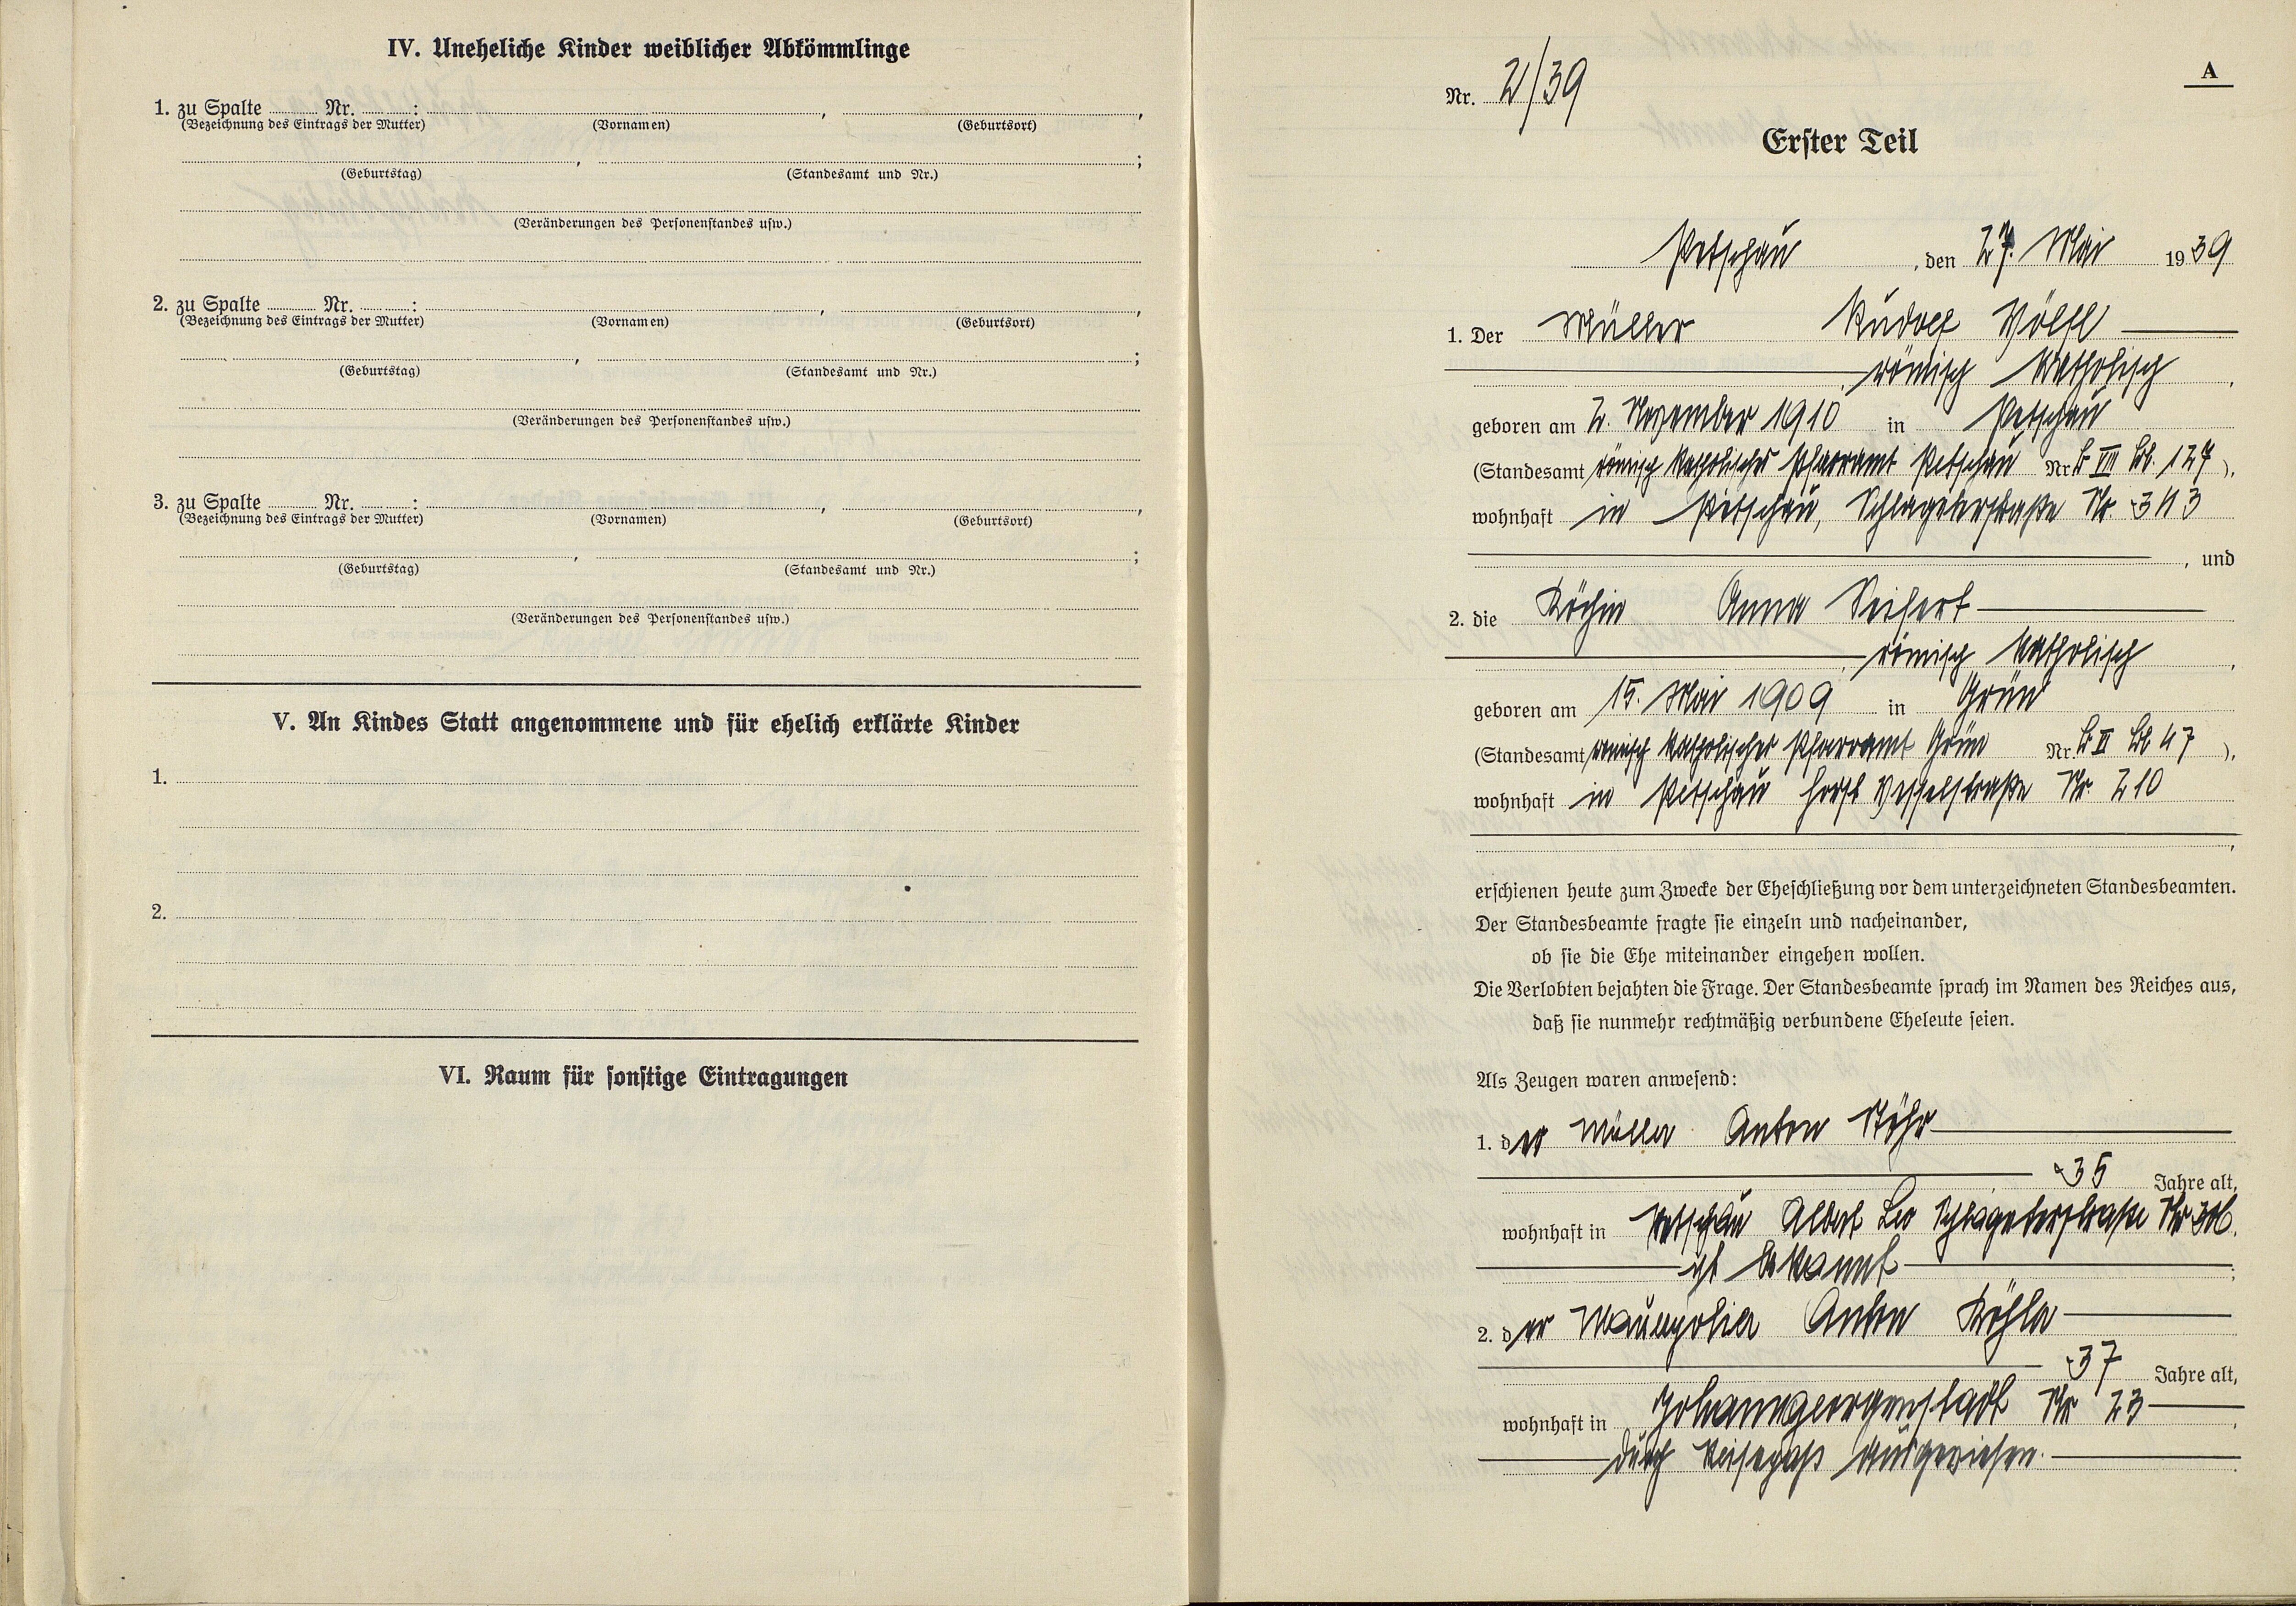 IV. Uneheliche Kinder weiblicher Abkömmlinge
1. zu Spalte ........ Nr. ........: , ,
(Bezeichnung des Eintrags der Mutter) (Vornamen) (Geburtsort)
, ;
(Geburtstag) (Standesamt und Nr.)
(Veränderungen des Personenstandes usw.)
2. zu Spalte ........ Nr. ........: , ,
(Bezeichnung des Eintrags der Mutter) (Vornamen) (Geburtsort)
, ;
(Geburtstag) (Standesamt und Nr.)
(Veränderungen des Personenstandes usw.)
3. zu Spalte ........ Nr. ........: , ,
(Bezeichnung des Eintrags der Mutter) (Vornamen) (Geburtsort)
, ;
(Geburtstag) (Standesamt und Nr.)
(Veränderungen des Personenstandes usw.)
V. An Kindes Statt angenommene und für ehelich erklärte Kinder
1.
2.
VI. Raum für sonstige Eintragungen
A
Nr. 2/39
Erster Teil
Petschau, den 27. Mai 1939
1. Der Müller Rudolf Wölfl
, römisch katholisch,
geboren am 2. November 1910 in Petschau
(Standesamt römisch katholisches Pfarramt Petschau Nr. VIII 127),
wohnhaft in Petschau, Schlageterstraße Nr. 313
, und
2. die Köchin Anna Seifert
, römisch katholisch,
geboren am 15. Mai 1909 in Grün
(Standesamt römisch katholisches Pfarramt Grün Nr. II 47),
wohnhaft in Petschau Horst Wesselstraße Nr. 210
,
erschienen heute zum Zwecke der Eheschließung vor dem unterzeichneten Standesbeamten.
Der Standesbeamte fragte sie einzeln und nacheinander,
ob sie die Ehe miteinander eingehen wollen.
Die Verlobten bejahten die Frage. Der Standesbeamte sprach im Namen des Reiches aus,
daß sie nunmehr rechtmäßig verbundene Eheleute seien.
Als Zeugen waren anwesend:
1. der Müller Anton
35 Jahre alt,
wohnhaft in Petschau Albert Leo Schlageterstraße Nr
ist bekannt;
2. der Anton Köhler
37 Jahre alt,
wohnhaft in Johanngeorgenstadt Nr 23
durch Reisepaß ausgewiesen.